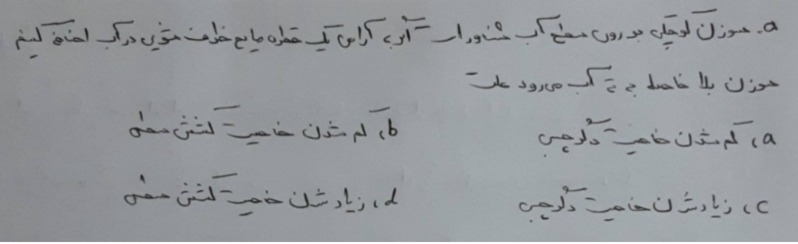 a. سوزن کوچکی بر روی سطح آب شناور است اگر به آرامی یک قطره مایع ظرف شویی در آب اضافه کنیم
سوزن بلا فاصله به ته آب می‌رود علت
a، کم شدن خاصیت دگرچسبی b، کم شدن خاصیت کشش سطحی
c، زیاد شدن خاصیت دگرچسبی d، زیاد شدن خاصیت کشش سطحی